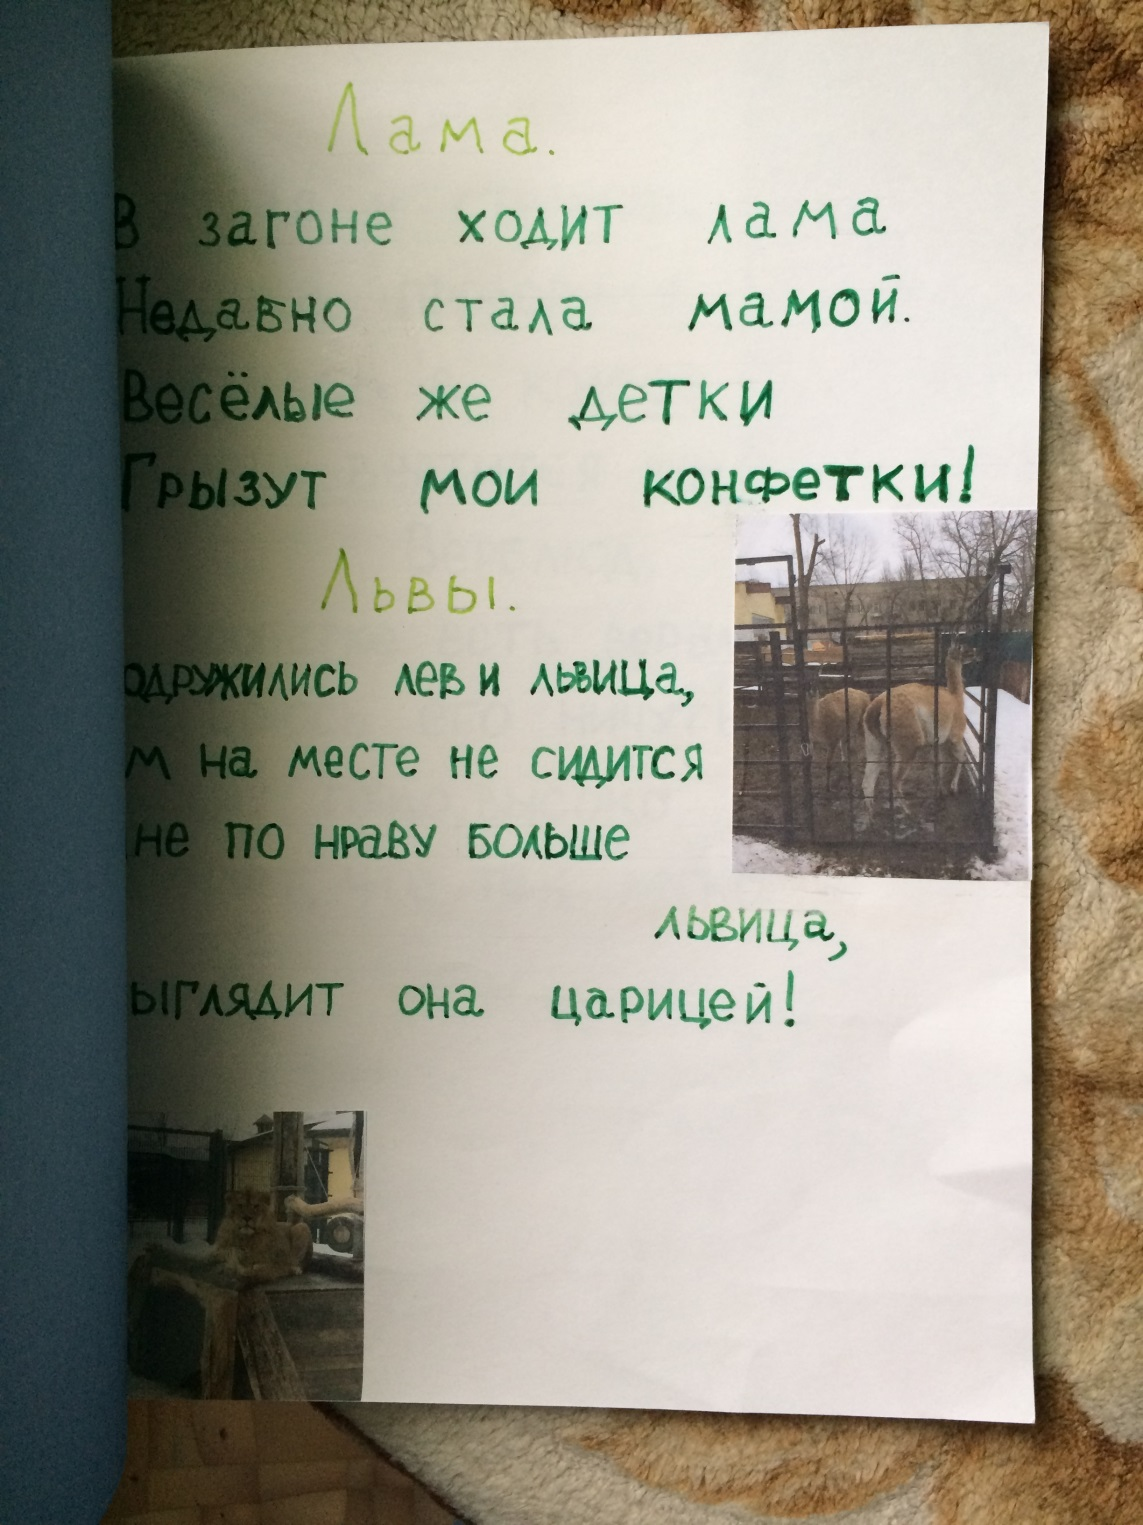 Лама.
В загоне ходит лама
Недавно стала мамой.
Весёлые же детки
Грызут мои конфетки!
Львы.
одружились лев и львица,
м на месте не сидится
не по нраву больше
львица,
ыглядит она царицей!